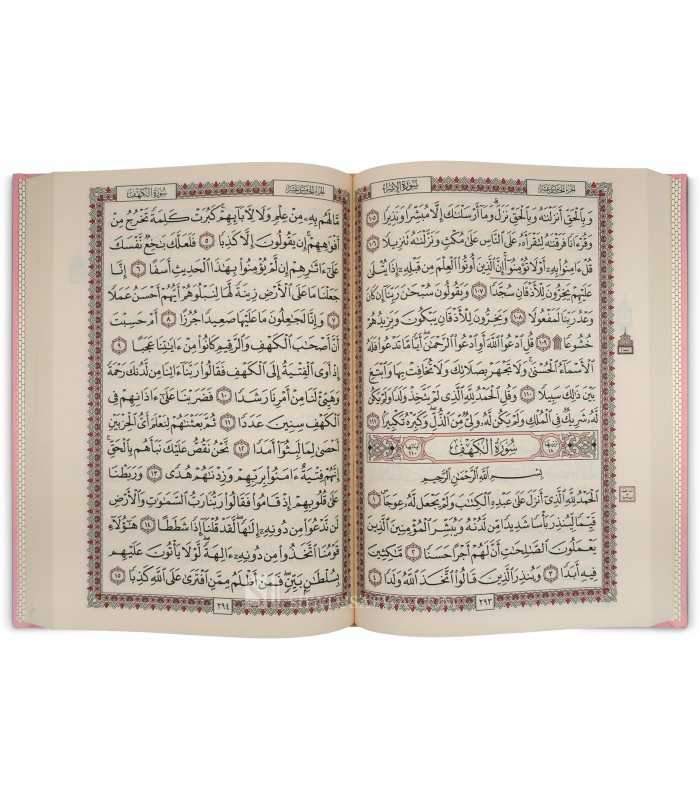 سُورَةُ الإِسْرَاءِ
الجُزْءُ الخَامِسَ عَشَرَ
وَبِالْحَقِّ أَنزَلْنَاهُ وَبِالْحَقِّ نَزَلَ وَمَا أَرْسَلْنَاكَ إِلَّا مُبَشِّرًا وَنَذِيرًا ١٠٥
وَقُرْآنًا فَرَقْنَاهُ لِتَقْرَأَهُ عَلَى النَّاسِ عَلَى مُكْثٍ وَنَزَّلْنَاهُ تَنزِيلًا ١٠٦
قُلْ ءَامِنُوا بِهِ أَوْ لَا تُؤْمِنُوا إِنَّ الَّذِينَ أُوتُوا الْعِلْمَ مِن قَبْلِهِ إِذَا يُتْلَى
عَلَيْهِمْ يَخِرُّونَ لِلْأَذْقَانِ سُجَّدًا ١٠٧ وَيَقُولُونَ سُبْحَانَ رَبِّنَا إِن كَانَ
وَعْدُ رَبِّنَا لَمَفْعُولًا ١٠٨ وَيَخِرُّونَ لِلْأَذْقَانِ يَبْكُونَ وَيَزِيدُهُمْ
خُشُوعًا ١٠٩ قُلِ ادْعُوا اللَّهَ أَوِ ادْعُوا الرَّحْمَٰنَ أَيًّا مَّا تَدْعُوا فَلَهُ
الْأَسْمَاءُ الْحُسْنَى وَلَا تَجْهَرْ بِصَلَاتِكَ وَلَا تُخَافِتْ بِهَا وَابْتَغِ
بَيْنَ ذَٰلِكَ سَبِيلًا ١١٠ وَقُلِ الْحَمْدُ لِلَّهِ الَّذِي لَمْ يَتَّخِذْ وَلَدًا وَلَمْ يَكُن
لَّهُ شَرِيكٌ فِي الْمُلْكِ وَلَمْ يَكُن لَّهُ وَلِيٌّ مِّنَ الذُّلِّ وَكَبِّرْهُ تَكْبِيرًا ١١١
سُورَةُ الكَهْفِ
بِسْمِ اللَّهِ الرَّحْمَٰنِ الرَّحِيمِ
الْحَمْدُ لِلَّهِ الَّذِي أَنزَلَ عَلَى عَبْدِهِ الْكِتَابَ وَلَمْ يَجْعَل لَّهُ عِوَجًا ١
قَيِّمًا لِّيُنذِرَ بَأْسًا شَدِيدًا مِّن لَّدُنْهُ وَيُبَشِّرَ الْمُؤْمِنِينَ الَّذِينَ
يَعْمَلُونَ الصَّالِحَاتِ أَنَّ لَهُمْ أَجْرًا حَسَنًا ٢ مَّاكِثِينَ
فِيهِ أَبَدًا ٣ وَيُنذِرَ الَّذِينَ قَالُوا اتَّخَذَ اللَّهُ وَلَدًا ٤
٢٩٣
الجُزْءُ الخَامِسَ عَشَرَ
سُورَةُ الكَهْفِ
مَّا لَهُم بِهِ مِنْ عِلْمٍ وَلَا لِآبَائِهِمْ كَبُرَتْ كَلِمَةً تَخْرُجُ مِنْ
أَفْوَاهِهِمْ إِن يَقُولُونَ إِلَّا كَذِبًا ٥ فَلَعَلَّكَ بَاخِعٌ نَّفْسَكَ
عَلَى ءَاثَارِهِمْ إِن لَّمْ يُؤْمِنُوا بِهَٰذَا الْحَدِيثِ أَسَفًا ٦ إِنَّا
جَعَلْنَا مَا عَلَى الْأَرْضِ زِينَةً لَّهَا لِنَبْلُوَهُمْ أَيُّهُمْ أَحْسَنُ عَمَلًا
٧ وَإِنَّا لَجَاعِلُونَ مَا عَلَيْهَا صَعِيدًا جُرُزًا ٨ أَمْ حَسِبْتَ
أَنَّ أَصْحَابَ الْكَهْفِ وَالرَّقِيمِ كَانُوا مِنْ ءَايَاتِنَا عَجَبًا ٩
إِذْ أَوَى الْفِتْيَةُ إِلَى الْكَهْفِ فَقَالُوا رَبَّنَا ءَاتِنَا مِن لَّدُنكَ رَحْمَةً
وَهَيِّئْ لَنَا مِنْ أَمْرِنَا رَشَدًا ١٠ فَضَرَبْنَا عَلَى ءَاذَانِهِمْ فِي
الْكَهْفِ سِنِينَ عَدَدًا ١١ ثُمَّ بَعَثْنَاهُمْ لِنَعْلَمَ أَيُّ الْحِزْبَيْنِ
أَحْصَى لِمَا لَبِثُوا أَمَدًا ١٢ نَّحْنُ نَقُصُّ عَلَيْكَ نَبَأَهُم بِالْحَقِّ
إِنَّهُمْ فِتْيَةٌ ءَامَنُوا بِرَبِّهِمْ وَزِدْنَاهُمْ هُدًى ١٣ وَرَبَطْنَا
عَلَى قُلُوبِهِمْ إِذْ قَامُوا فَقَالُوا رَبُّنَا رَبُّ السَّمَاوَاتِ وَالْأَرْضِ
لَن نَّدْعُوَا مِن دُونِهِ إِلَٰهًا لَّقَدْ قُلْنَا إِذًا شَطَطًا ١٤ هَٰؤُلَاءِ
قَوْمُنَا اتَّخَذُوا مِن دُونِهِ ءَالِهَةً لَّوْلَا يَأْتُونَ عَلَيْهِم
بِسُلْطَانٍ بَيِّنٍ فَمَنْ أَظْلَمُ مِمَّنِ افْتَرَى عَلَى اللَّهِ كَذِبًا ١٥
٢٩٤